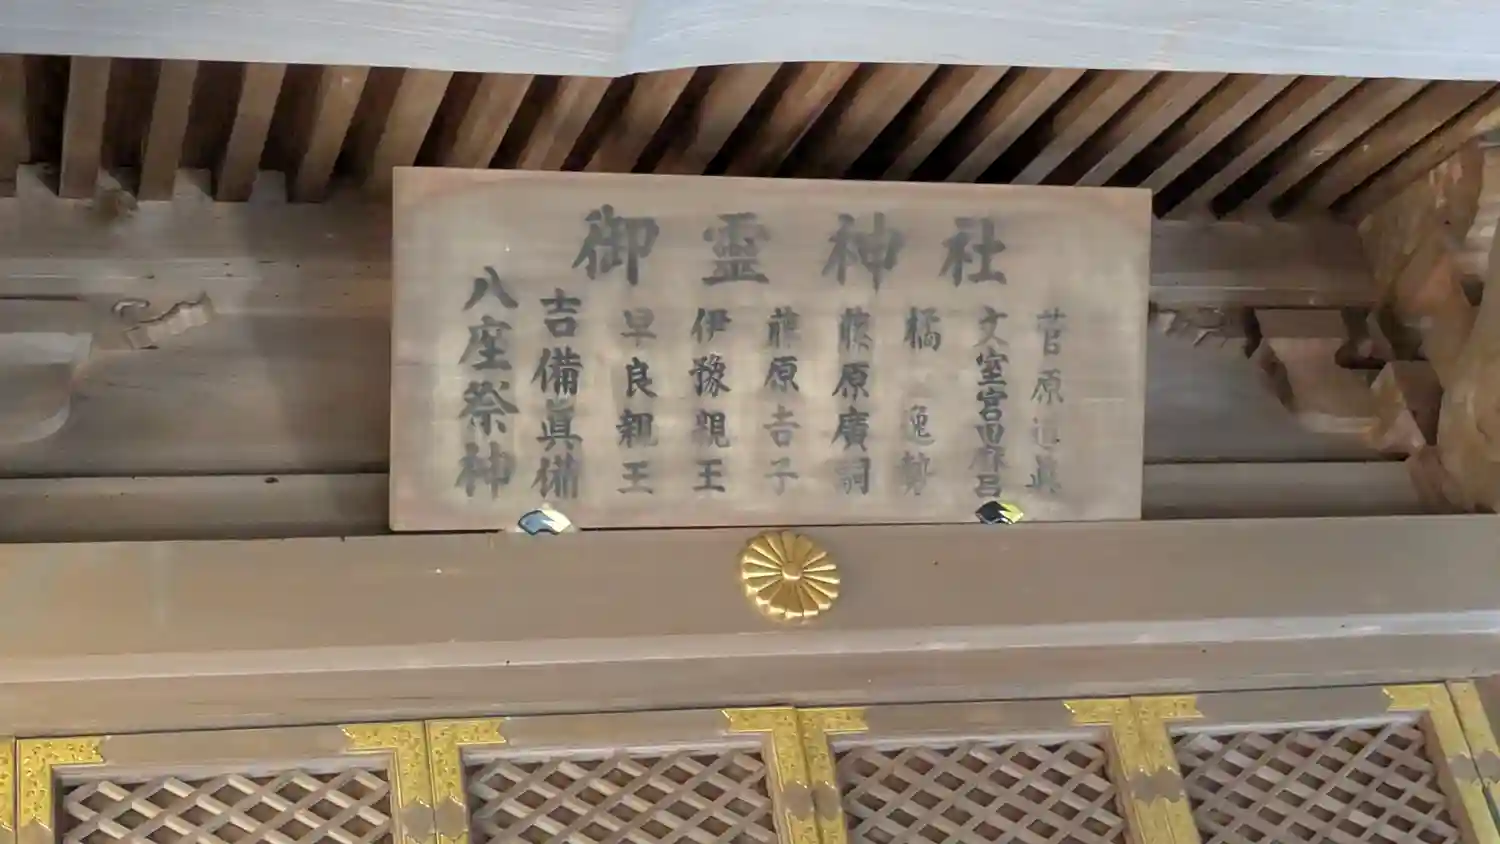 御霊神社
八座祭神
吉備眞備
早良親王
伊豫親王
藤原吉子
藤原廣嗣
橘 逸勢
文室宮田麻呂
菅原道眞